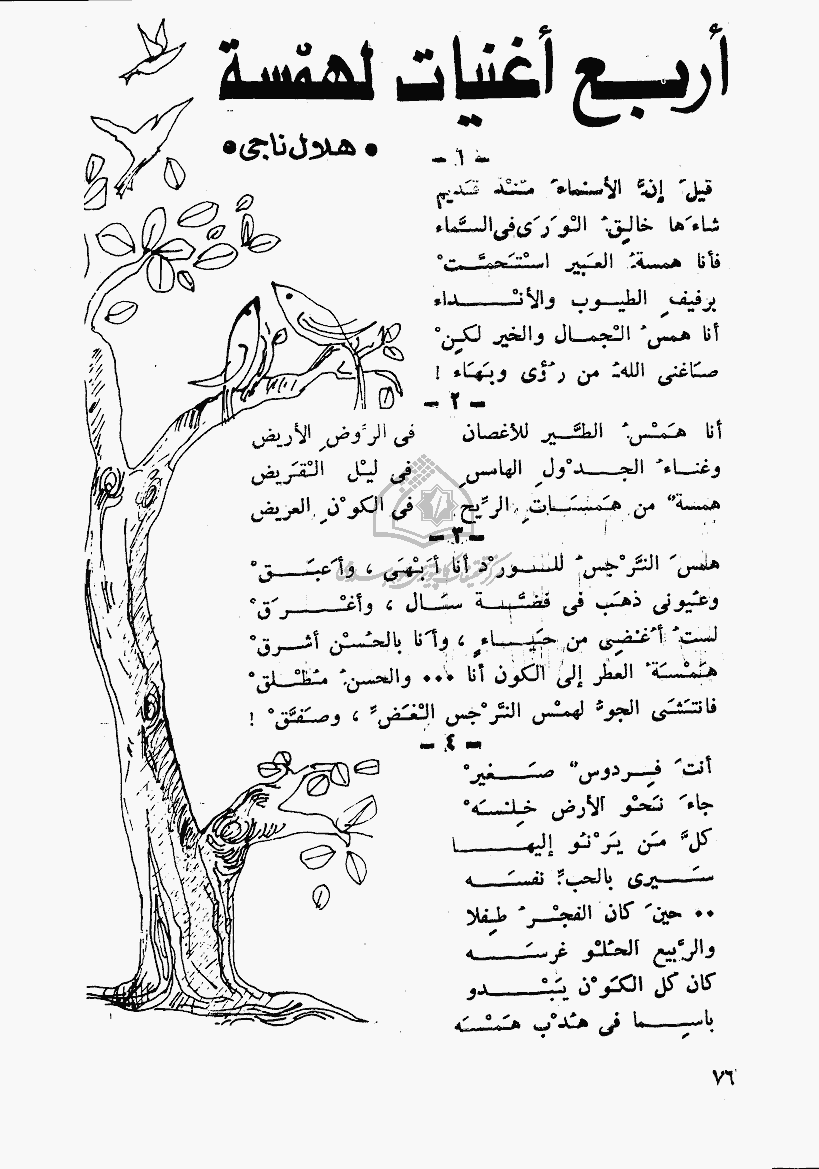 أربع أغنيات لهمسة
• هلال ناجي •
- ١ -
قيلَ إنَّ الأسماءَ منذُ قديم
شاءَها خالِقُ الوَرَى في السَّماء
فأنا همسةُ العبير استَحمَّتْ
برفيفِ الطيوب والأنْداء
أنا همسُ الجمال والخير لكِنْ
صاغني اللهُ من رُؤى وبَهَاء !
- ٢ -
أنا هَمْسُ الطَّير للأغصان في الرَّوضِ الأريض
وغناءُ الجدْولِ الهامسِ في ليْل القَريض
همسةٌ من هَمَسَاتِ الرِّيح في الكوْنِ العريض
- ٣ -
همسَ النَّرْجسُ للورْد أنا أَبْهَى ، وأَعبَقْ
وعُيوني ذهَب في فضَّة سَال ، وأغْرَقْ
لستُ أُغضِي من حَيَاءٍ ، وأنا بالحُسْن أشرقْ
هَمْسَةُ العطر إلى الكون أنا ... والحسنُ مُطْلَقْ
فانتَشَى الجوُّ لهمْس النَّرْجس الغَضِّ ، وصَفَّقْ !
- ٤ -
أنتَ فِردوسٌ صَغيرْ
جاءَ نَحْو الأرض خلسَهْ
كلُّ مَن يَرْنُو إليها
سَيرى بالحبِّ نفسَه
.. حينَ كان الفجْرُ طِفلا
والرَّبيع الحُلْو غرسَه
كان كل الكَوْن يَبْدو
باسِما في هُدْب هَمْسَه
٧٦